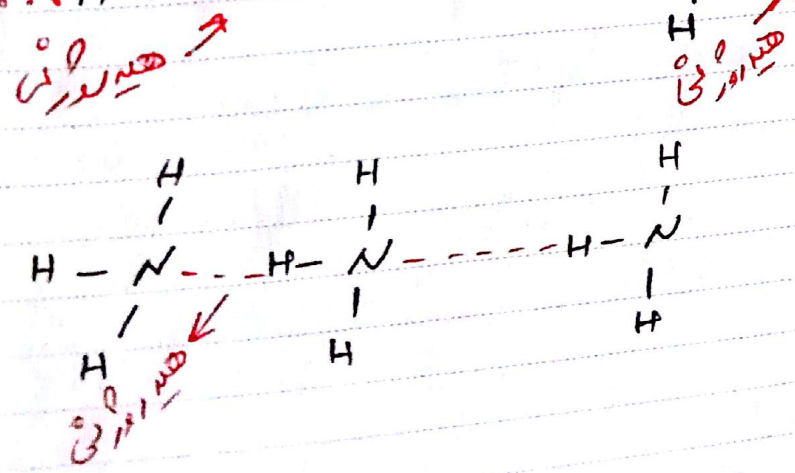 هیدروژنی
H
هیدروژنی
H H H
H – N - - - H – N - - - - - - H – N
H H H
هیدروژنی